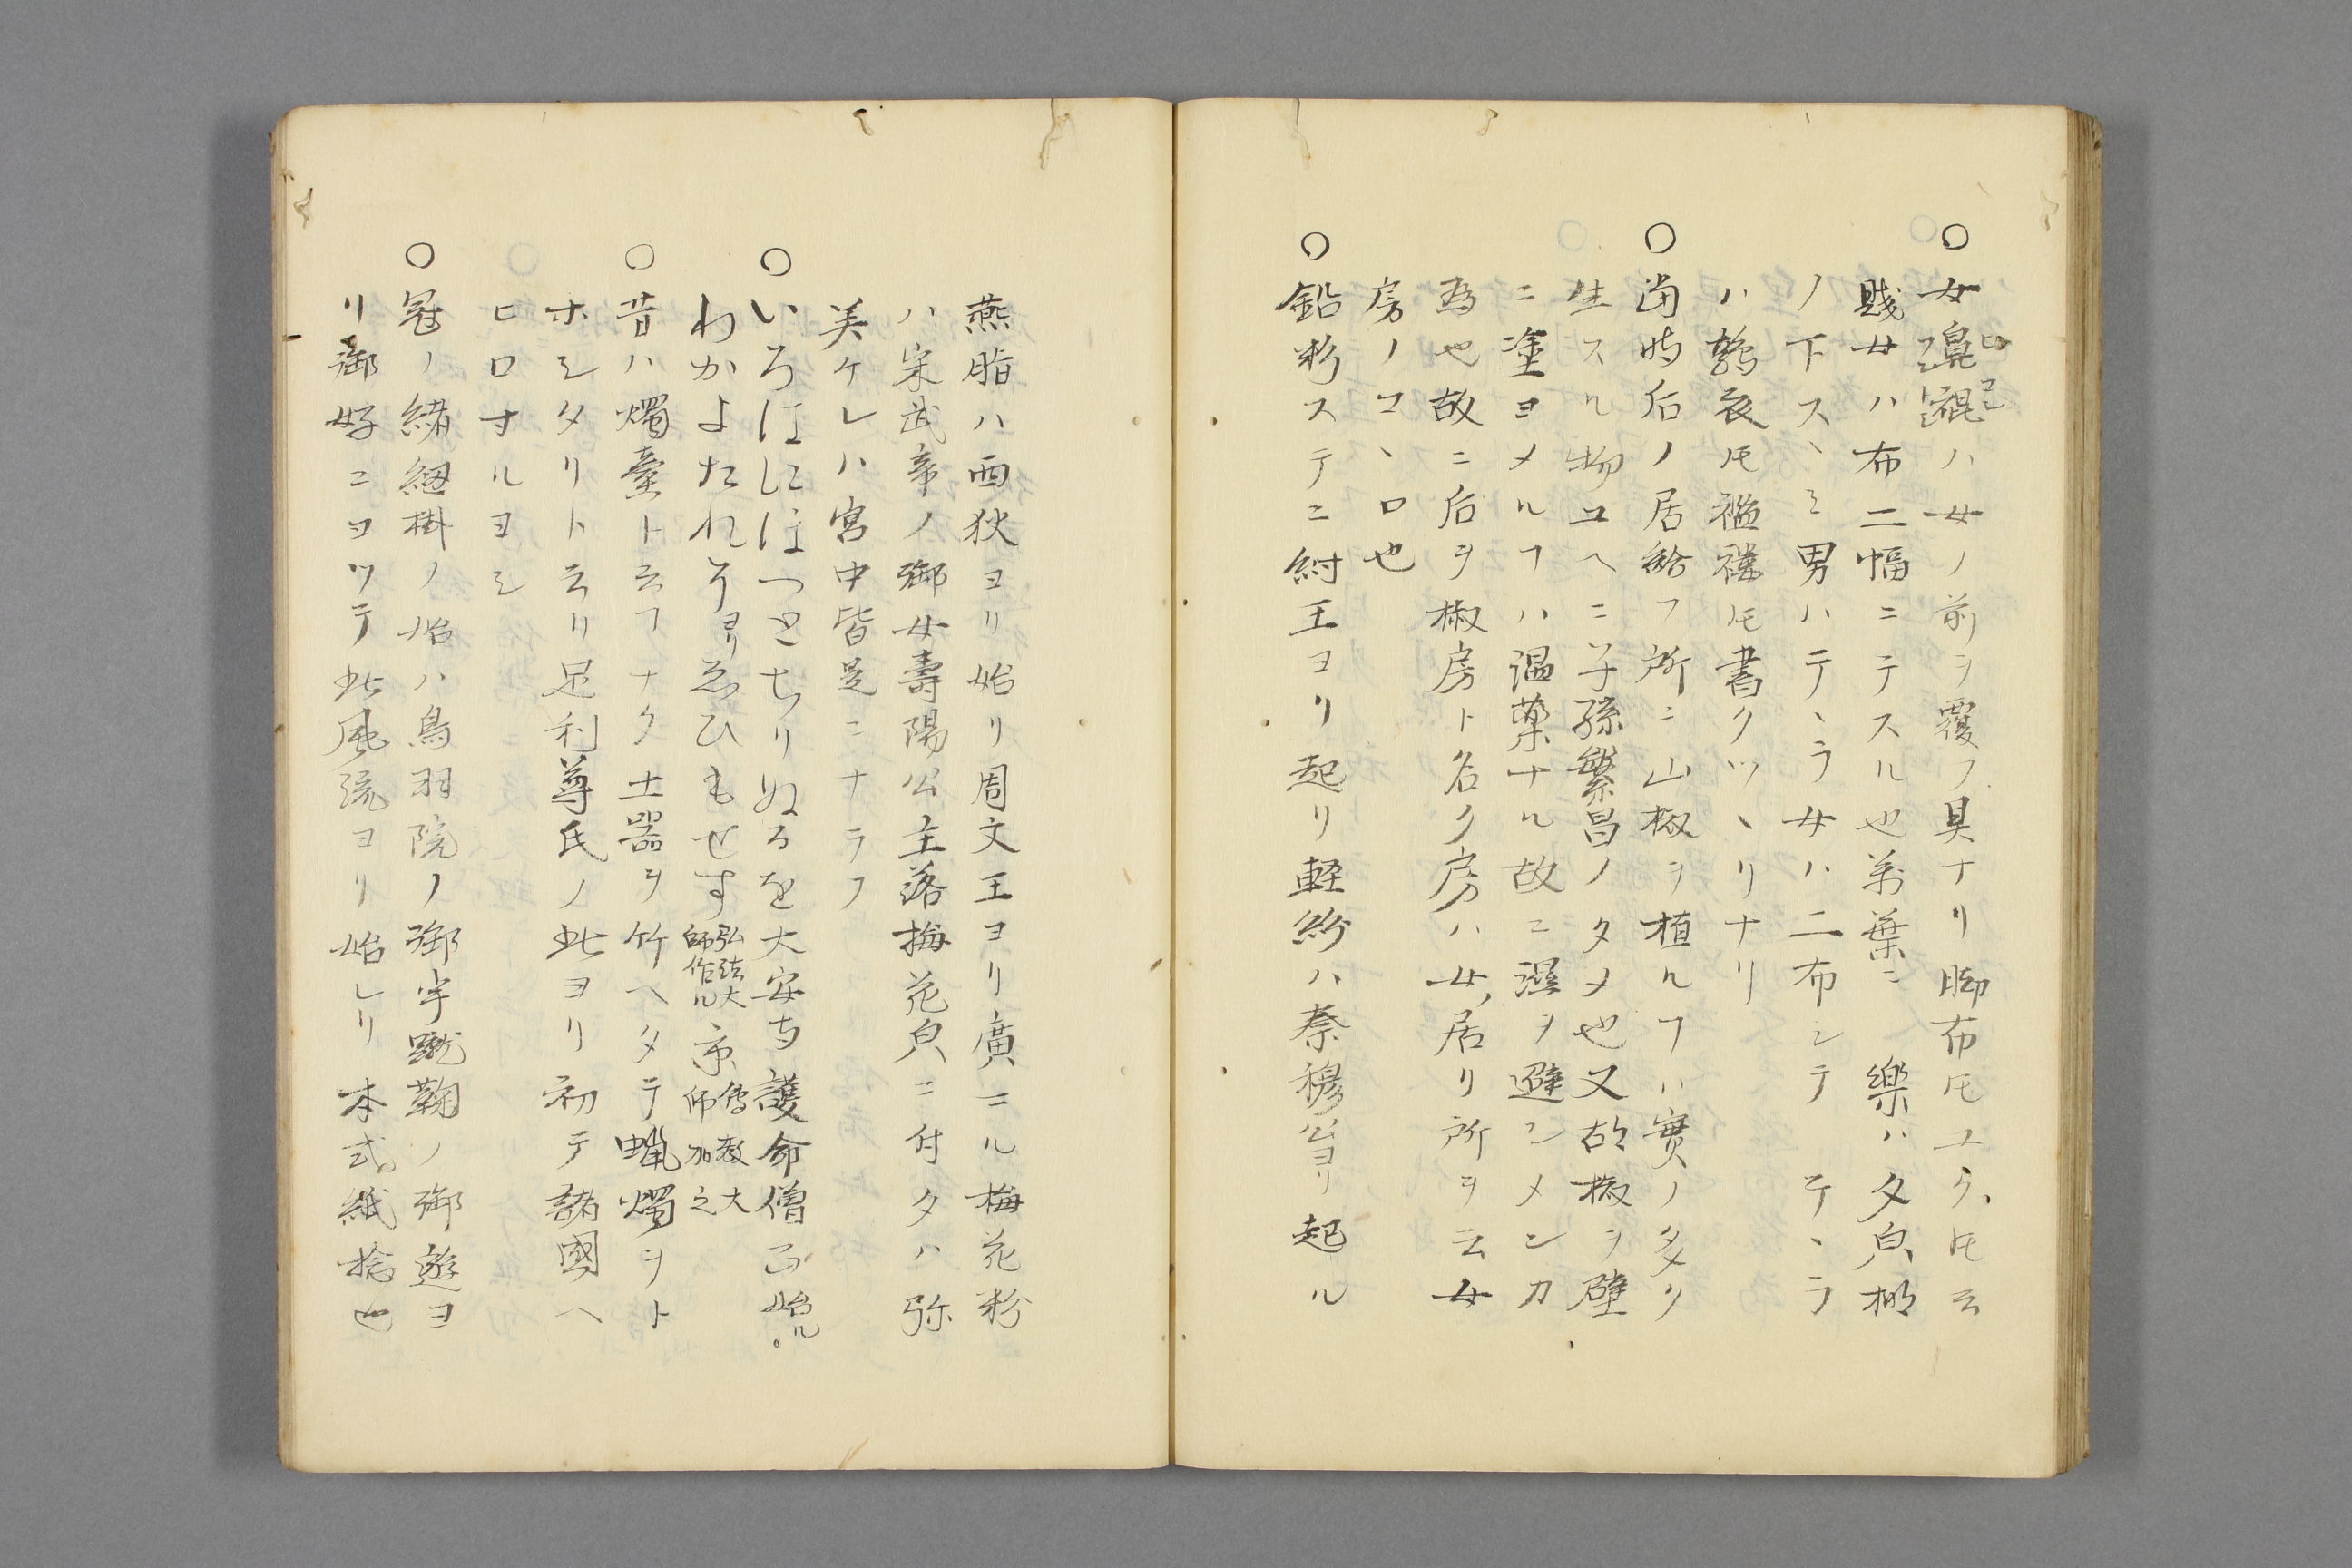 ○女褌ハ女ノ前ヲ覆フ具ナリ脚布𪜈ユク𪜈云
賤女ハ布二幅ニテスル也万葉ニ 樂ハ夕皃棚
ノ下スヽミ男ハテヽラ女ハ二布シテ テヽラ
ハ鶉衣𪜈襤褸𪜈書クツヽリナリ
○當時后ノ居給フ所ニ山椒ヲ植ルヿハ實ノ多ク
生スル物ユヘニ子孫繁昌ノタメ也又故椒ヲ壁
ニ塗ヨメルヿハ温藥ナル故ニ濕ヲ避シメンカ
為也故ニ后ヲ椒房ト名ク房ハ女居リ所ヲ云女
房ノコヽロ也
○鉛粉ステニ紂王ヨリ起リ軽粉ハ秦穆公ヨリ起ル
燕脂ハ西狄ヨリ始リ周文王ヨリ廣ニル梅花粉
ハ宋武帝ノ御女壽陽公主落梅花皃ニ付タハ弥
美ケレハ宮中皆是ニナラフ
○いろはにほへとちりぬるを大安寺護命僧正始ル。
わかよたれそヨリゑひもせす弘法大師作ル京傳教大師加之
○昔ハ燭臺ト云フナク土器ヲ竹ヘタテ蝋燭ヲト
ホシタリト云リ足利尊氏ノ此ヨリ初テ諸國ヘ
ヒロマルヨシ
○冠ノ緒紐掛ノ始ハ鳥羽院ノ御宇蹴鞠ノ御遊ヨ
リ御好ニヨツテ此風流ヨリ始レリ本式紙捻也